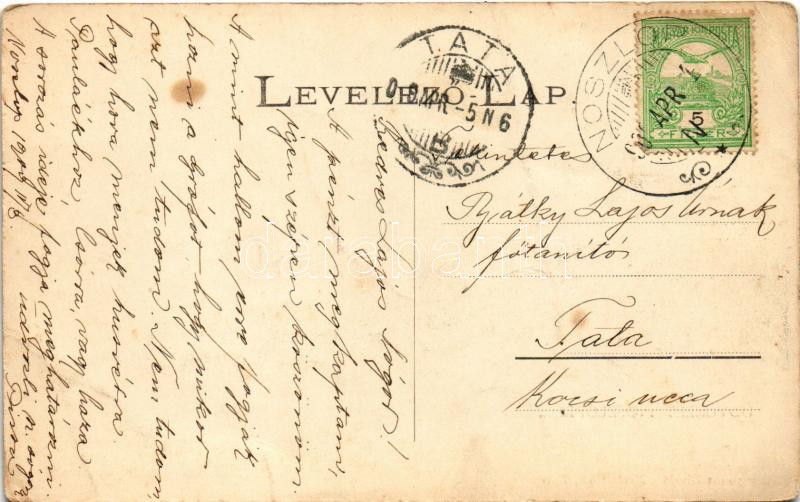 LEVELEZŐ LAP.
TATA
08 APR -5 N 6
NOSZLO
APR 4
MAGYAR KIR. POSTA
5
darabanth
Tekintetes
Pjátky Lajos Úrnak
főtanító
Tata
Kocsi ucca
Kedves Lajos Sógor!
A pénzt megkaptam,
igen szépen köszönöm.
A mint hallom, erre fogják
hozni a grófot, hogy mikor
azt nem tudom. Nem tudom,
hogy hova menjek husvétra
Pauláékhoz Csórra, vagy haza.
A sorozás ideje fogja meghatározni.